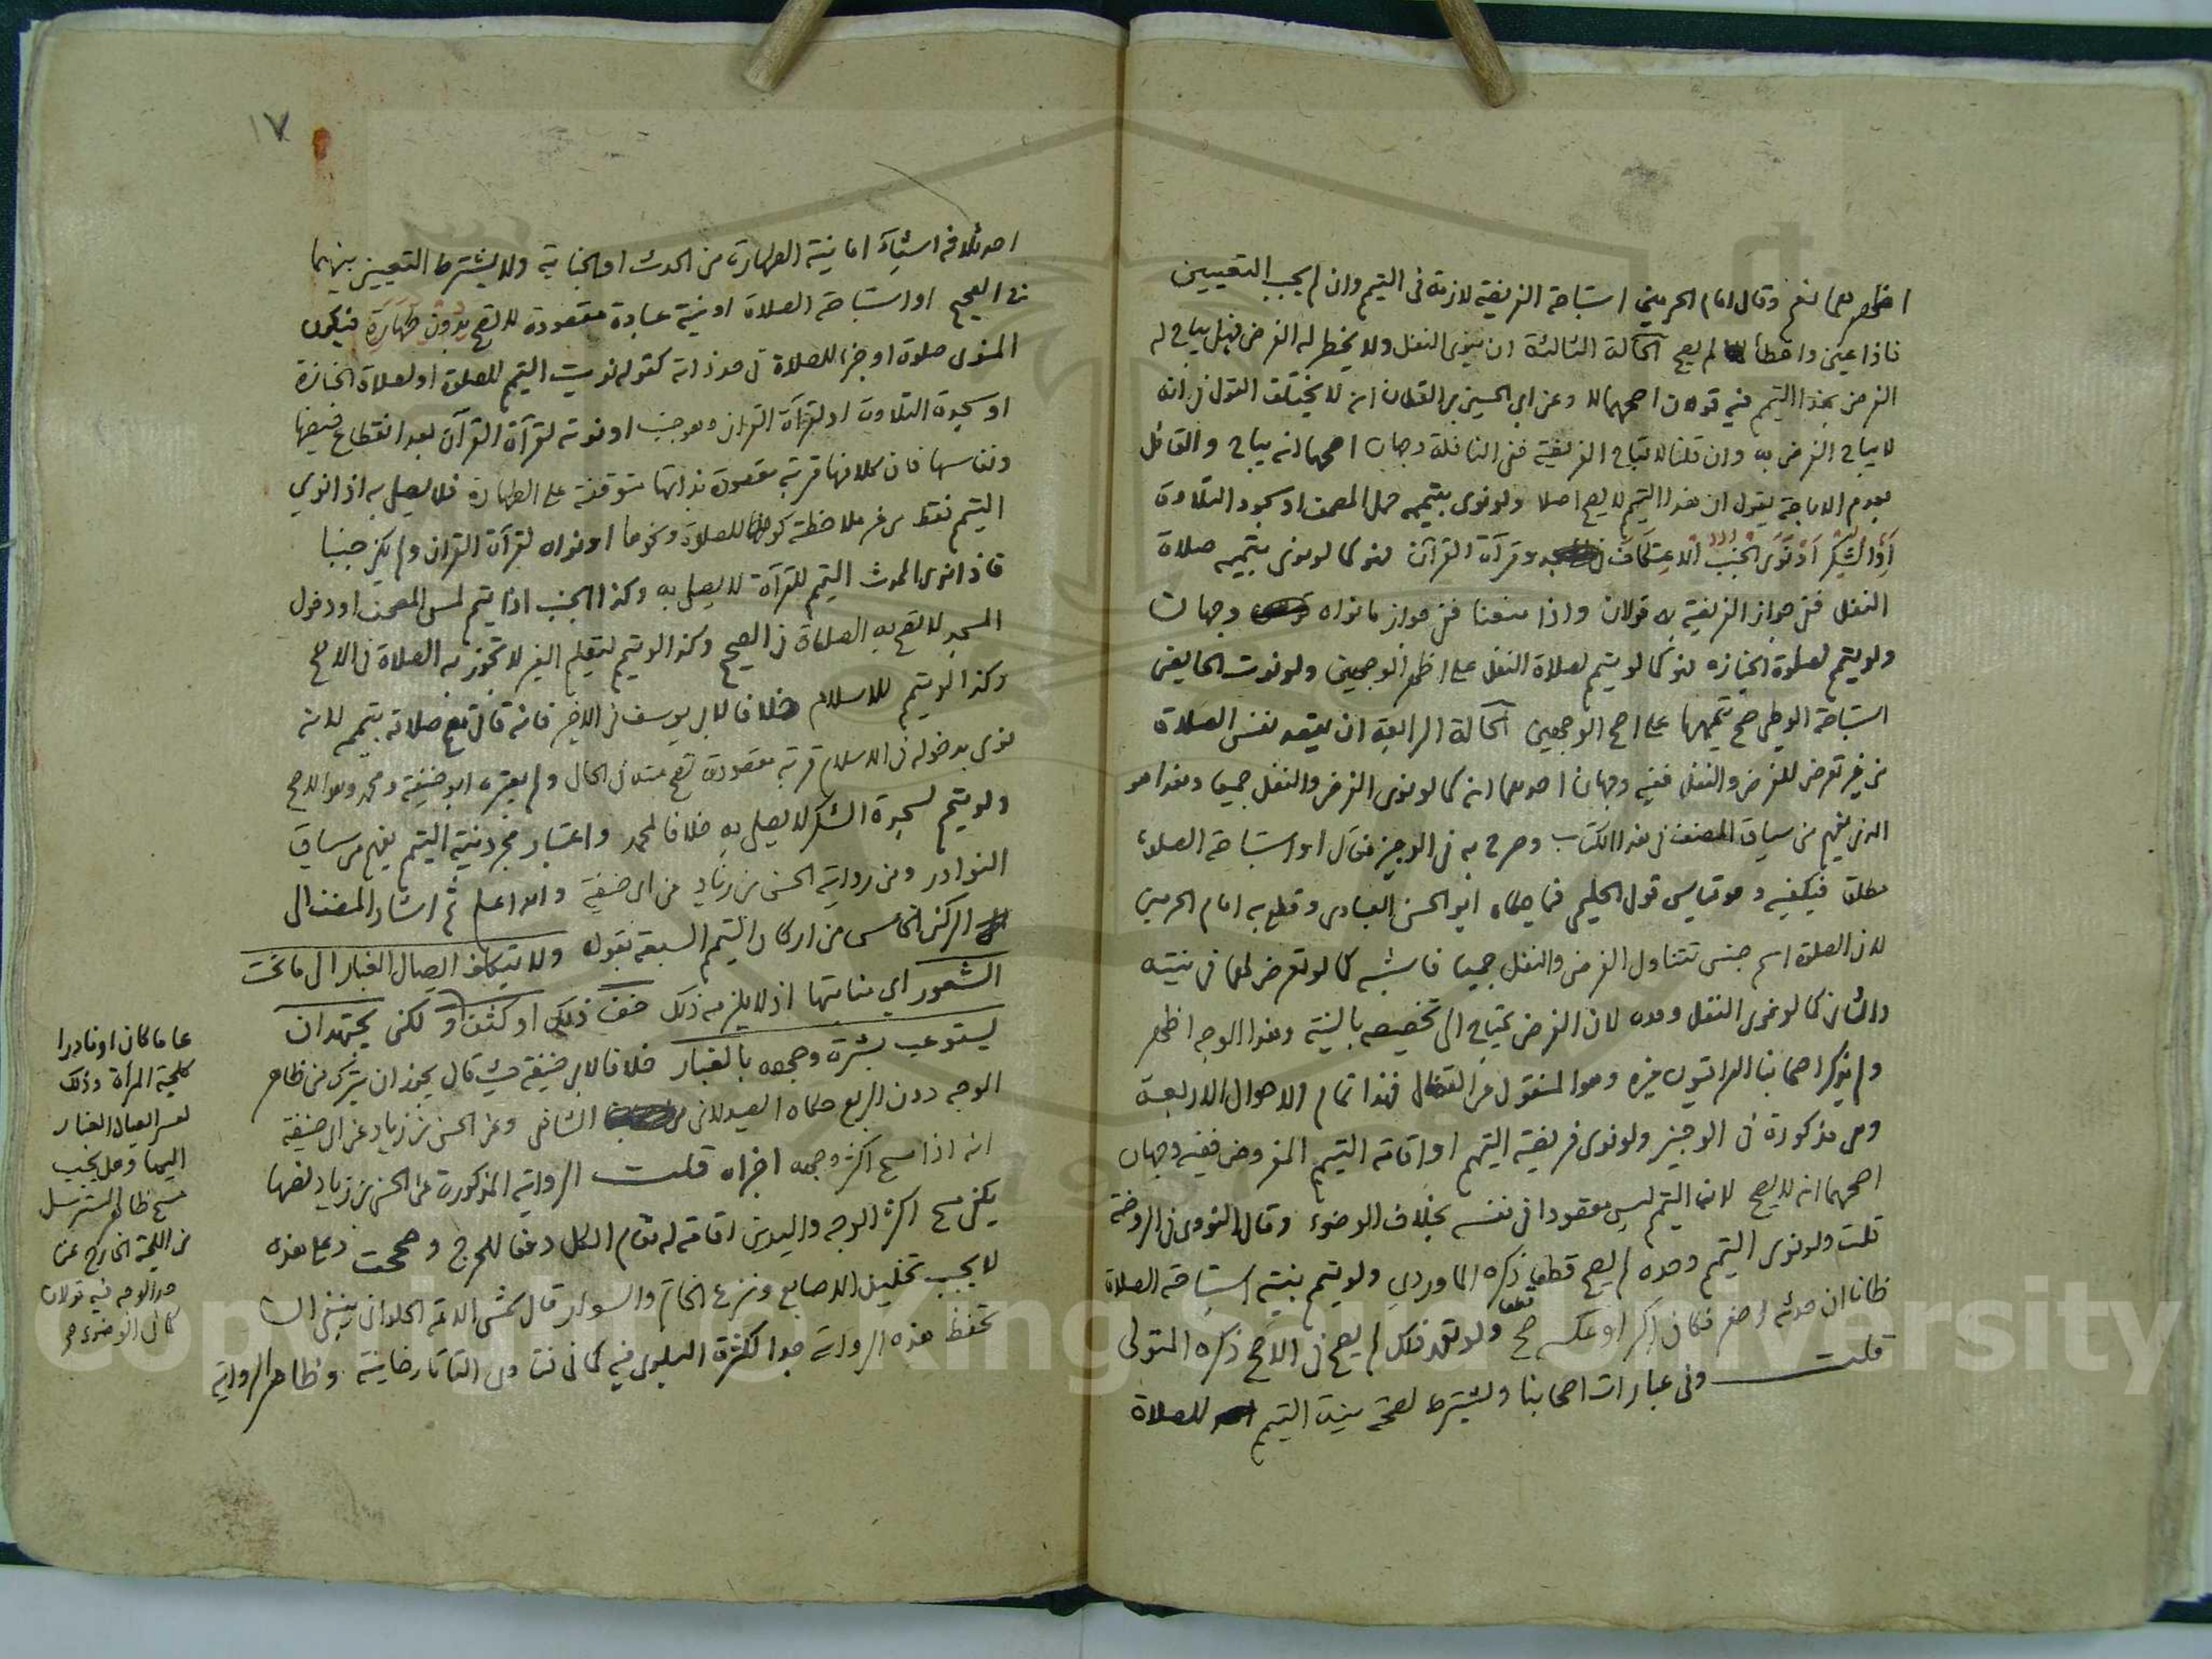 اظهرهما نعم وقال امام الحرمين استباحة الفريضة لازمة في التيمم وان لم يجب التعيين
فاذا عين واخطأ لم يصح الحالة الثالثة ان ينوي النفل ولا يخطر له الفرض فهل يباح له
الفرض بهذا التيمم فيه قولان اصحهما لا وعن ابي الحسين بن القطان انه لا يختلف القول في انه
لا يباح الفرض به وان قلنا لا يباح الفريضة ففي النافلة وجهان اصحهما انه يباح والقائل
بعدم الاباحة يقول ان هذا التيمم لا يصح اصلا ولو نوى بتيممه حمل المصحف او سجود التلاوة
او الشكر او نوى الجنب الاعتكاف وقرآة القرآن فهو كما لو نوى بتيممه صلاة
النفل ففي جواز الفريضة به قولان واذا منعنا ففي جواز ما نواه وجهان
ولو تيمم لصلوة الجنازه فهو كما لو تيمم لصلاة النفل على اظهر الوجهين ولو نوت الحايض
استباحة الوطئ صح تيممها على اصح الوجهين الحالة الرابعة ان يقصد نفس الصلاة
من غير تعرض للفرض والنفل ففيه وجهان احدهما انه كما لو نوى الفرض والنفل جميعا وهذا هو
الذي يفهم من سياق المصنف في هذا الكتاب وصرح به في الوجيز فقال او استباحة الصلاة
مطلقا فيكفيه وهو قياس قول الحليمي فيما حكاه ابو الحسن العبادي وقطع به امام الحرمين
لان الصلوة اسم جنس تتناول الفرض والنفل جميعا فاشبه كما لو تعرض لهما في نيته
والثاني كما لو نوى النفل وحده لان الفرض يحتاج الى تخصيصه بالنية وهذا الوجه اظهر
ولم يذكر اصحابنا العراقيون غيره وهو المنقول عن القفال فهذا تمام الاحوال الاربعة
وهي مذكورة في الوجيز ولو نوى فريضة التيمم او اقامة التيمم المفروض ففيه وجهان
اصحهما انه لا يصح لان التيمم ليس مقصودا في نفسه بخلاف الوضوء وقال النووي في الروضة
قلت ولو نوى التيمم وحده لم يصح قطعا ذكره الماوردي ولو تيمم بنية استباحة الصلاة
ظانا ان حدثه اصغر فكان اكبر او عكسه صح قطعا ولو تعمد ذلك لم يصح في الاصح ذكره المتولي
قلت وفي عبارات اصحابنا ويشترط لصحة نية التيمم للصلاة
١٧
احد ثلاثة اشياء اما نية الطهارة من الحدث او الجنابة ولا يشترط التعيين بينهما
في الصحيح او استباحة الصلاة او نية عبادة مقصودة لا تصح بدون طهارة فيكون
المنوي صلوة او جزءا للصلاة في حد ذاته كقوله نويت التيمم للصلوة او لصلاة الجنازة
او سجدة التلاوة او لقرآة القرآن وهو جنب او نوته لقرآة القرآن بعد انقطاع حيضها
ونفاسها فان كلا منها قربة مقصودة بذاتها متوقفة على الطهارة فلا يصلي به اذا نوى
التيمم فقط من غير ملاحظة كونه للصلاة ونحوها او نواه لقرآة القرآن ولم يكن جنبا
فاذا نوى المحدث التيمم للقرآة لا يصلي به وكذا الجنب اذا تيمم لمس المصحف او دخول
المسجد لا تصح به الصلاة في الصحيح وكذا لو تيمم لتعليم الغير لا تجوز به الصلاة في الاصح
وكذا لو تيمم للاسلام خلافا لابي يوسف في الاخير فانه قال تصح صلاته بتيممه لانه
نوى بدخوله في الاسلام قربة مقصودة تصح منه في الحال ولم يعتبره ابو حنيفة ومحمد وهو الاصح
ولو تيمم لسجدة الشكر لا يصلي به خلافا لمحمد واعتبار مجرد نية التيمم يفهم من سياق
النوادر ومن رواية الحسن بن زياد عن ابي حنيفة والله اعلم ثم اشار المصنف الى
الركن الخامس من اركان التيمم السبعة بقوله ولا يتكلف ايصال الغبار الى ما تحت
الشعور اي منابتها اذ لا يلزمه ذلك خف ذلك او كثف ولكن يجتهد ان
يستوعب بشرة وجهه بالغبار خلافا لابي حنيفة حيث قال يجوز ان يترك من ظاهر
الوجه دون الربع حكاه الصيدلاني الشافعي وعن الحسن بن زياد عن ابي حنيفة
انه اذا مسح اكثر وجهه اجزاه قلت الرواية المذكورة عن الحسن بن زياد نصها
يكفي مسح اكثر الوجه واليدين اقامة له مقام الكل دفعا للحرج وصححت وعلى هذه
لا يجب تخليل الاصابع ونزع الخاتم والسوار قال شمس الائمة الحلواني ينبغي ان
تحفظ هذه الرواية جدا لكثرة البلوى فيه كما في فتاوى التاتارخانية وظاهر الرواية
عاما كان او نادرا
كلحية المرأة وذلك
لعسر ايصال الغبار
اليها وهل يجب
مسح ظاهر المسترسل
من اللحية الخارج عن
حد الوجه فيه قولان
كما في الوضوء صح